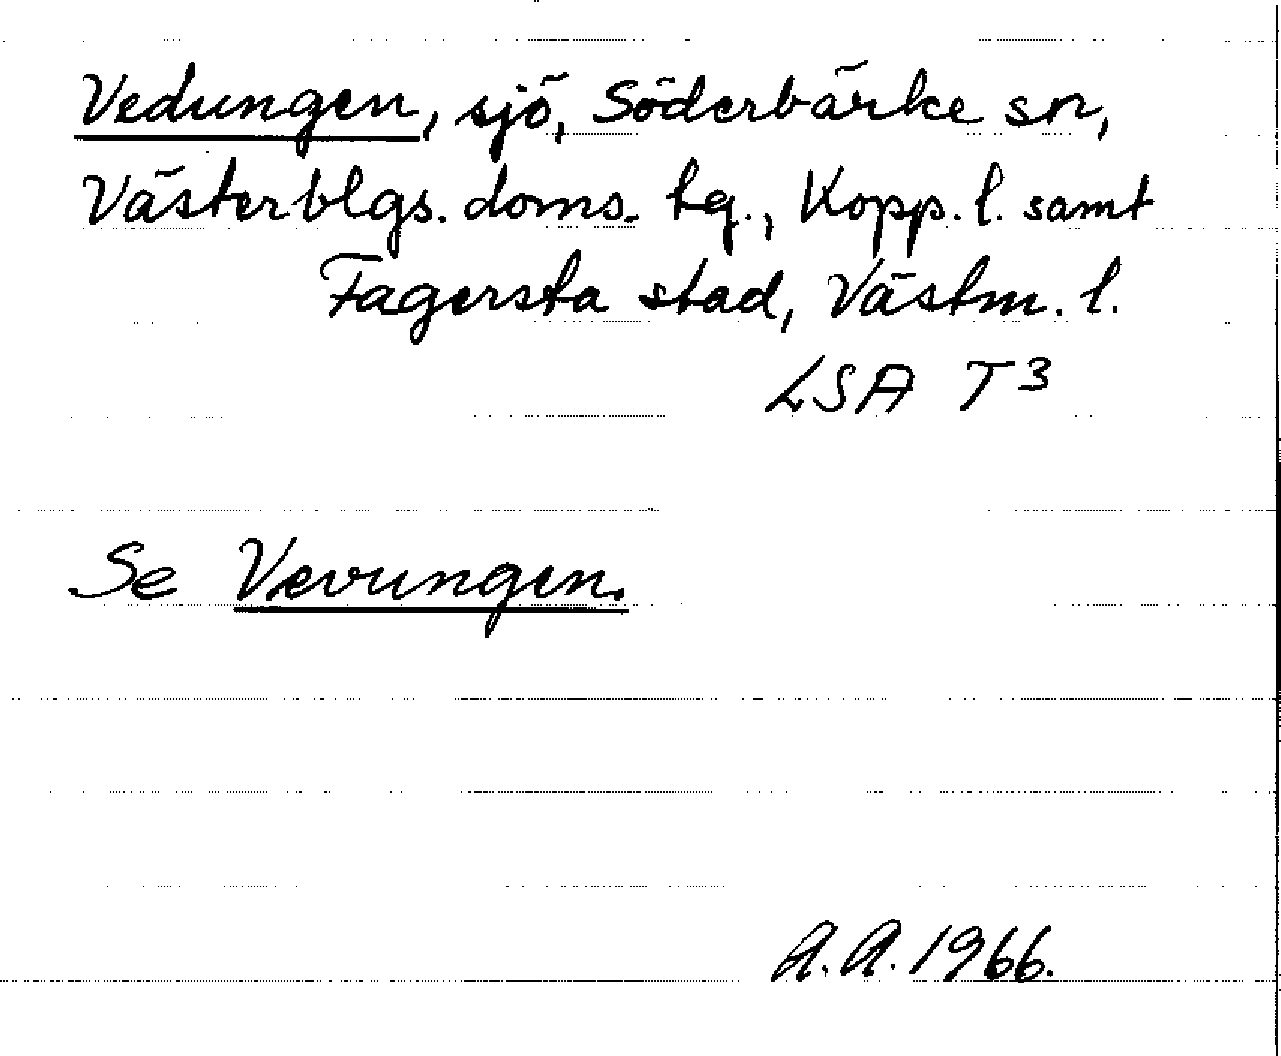 Vedungen, sjö, Söderbärke sn,
Västerblgs. doms. tg., Kopp. l. samt
Fagersta stad, Västm. l.
LSA T3
Se Vevungen.
A.A. 1966.